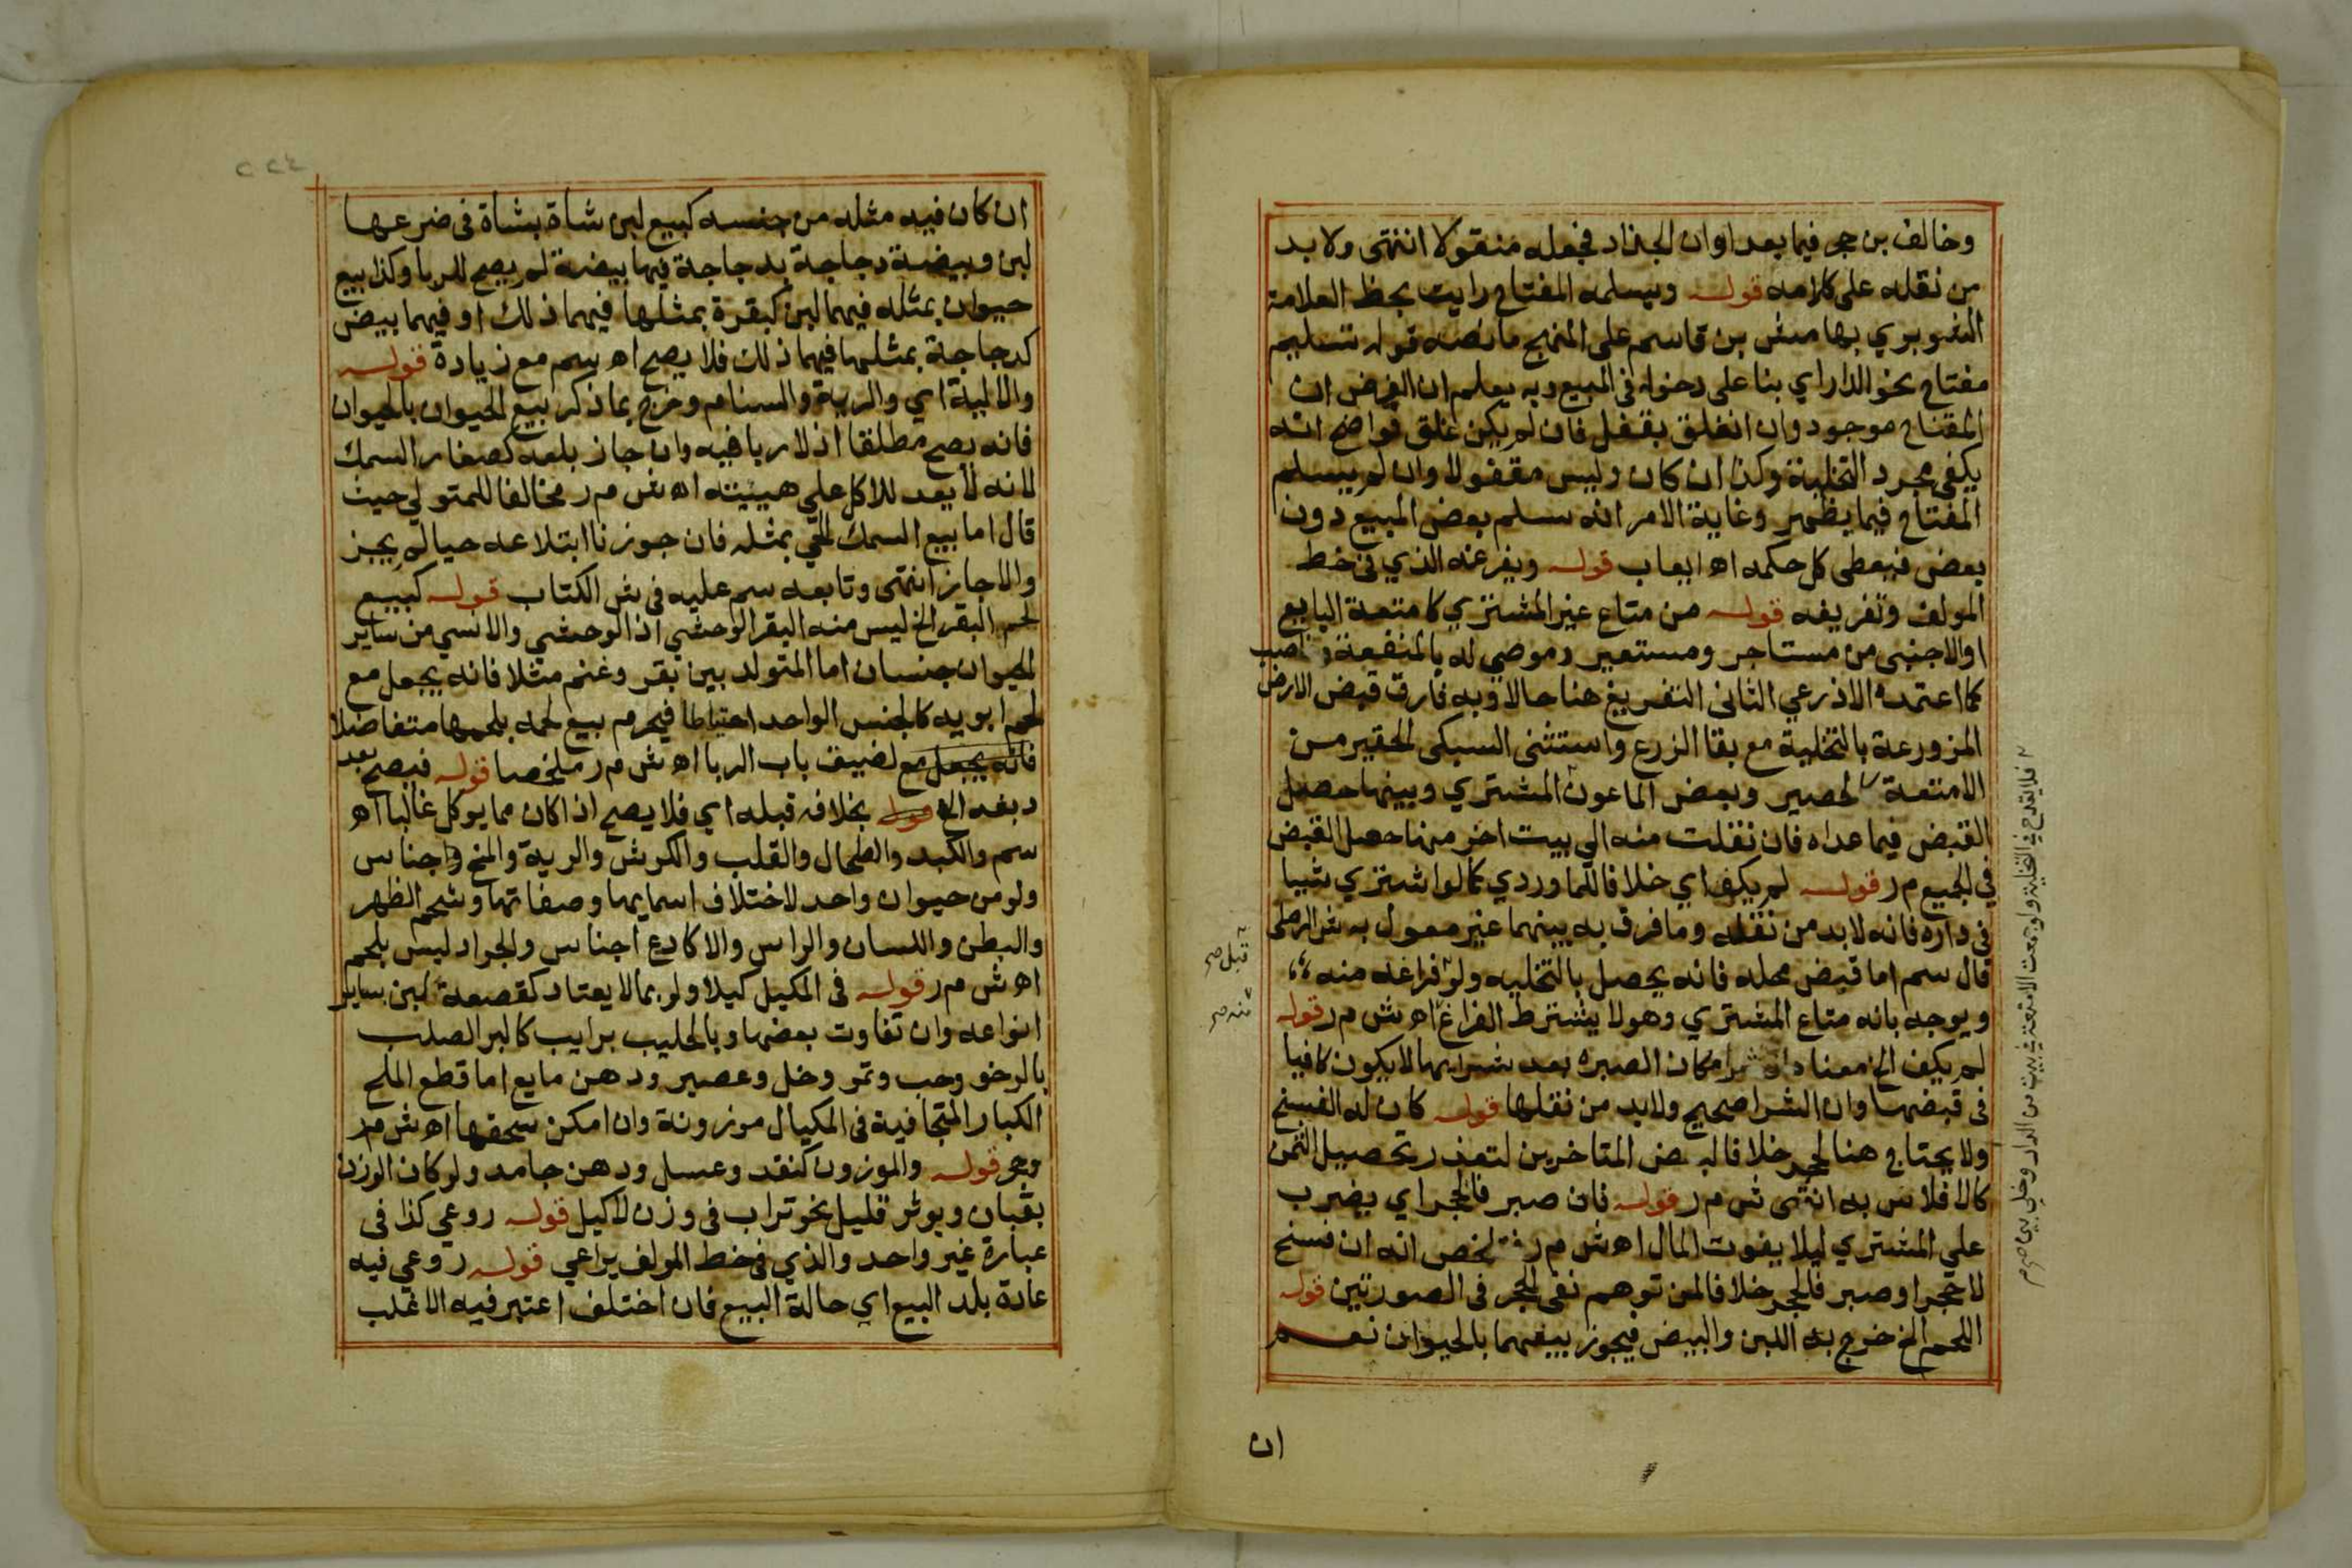 وخالف بن حجر فيما بعد اوان الجذاذ فجعله منقولا انتهى ولا بد
من نقله على كلامه قوله وتسلمه المفتاح رايت بخط العلامة
الشوبري بهامش بن قاسم على المنهج ما نصه قوله تسليم
مفتاح نحو الدار اي بنا على دخوله في المبيع وبه يعلم ان الفرض ان
المفتاح موجود وان انغلق بقفل فان لم يكن غلق فواضح انه
يكفي مجرد التخلية وكذا ان كان وليس مقفولا وان لم يسلم
المفتاح فيما يظهر وغاية الامر انه سلم بعض المبيع دون
بعض فيعطى كل حكمه اه ايعاب قوله ويفرغه الذي في خط
المولف وتفريغه قوله من متاع غير المشتري كامتعة البايع
او الاجنبي من مستاجر ومستعير وموصي له بالمنفعة وغاصب
كما اعتمده الاذرعي الثاني التفريغ هنا حالا وبه فارق قبض الارض
المزروعة بالتخلية مع بقا الزرع واستثنى السبكى الحقير من
الامتعة كالحصير وبعض الماعون المشتري وبينها حصل
القبض فيما عداه فان نقلت منه الي بيت اخر منها حصل القبض
في الجميع م ر قوله لم يكف اي خلافا للماوردي كما لو اشتري شيا
في داره فانه لابد من نقله وما فرق به بينهما غير معول به ش الرملى
قال سم اما قبض محله فانه يحصل بالتخليه ولو فراغه منه
ويوجه بانه متاع المشتري وهو لا يشترط الفراغ اه ش م ر قوله
لم يكف الخ معناه ان شرا مكان الصبره بعد شرايها لا يكون كافيا
في قبضها وان الشرا صحيح ولابد من نقلها قوله كان له الفسخ
ولا يحتاج هنا لحجر خلافا لبعض المتاخرين لتعذر تحصيل الثمن
كالافلاس به انتهى ش م ر قوله فان صبر فالحجر اي يضرب
على المشتري ليلا يفوت المال اه ش م ر تلخص انه ان فسخ
لا حجر او صبر فالحجر خلافا لمن توهم نفى الحجر فى الصورتين قوله
اللحم الخ خرج به اللبن والبيض فيجوز بيعهما بالحيوان نعم
ان
فلا يقدح في التخلية ولو جمعت الامتعة في بيت من الدار وخلي بين
قبل صح
منه صح
ان كان فيه مثله من جنسه كبيع لبن شاة بشاة في ضرعها
لبن وبيضة دجاجة بدجاجة فيها بيضة لم يصح للربا وكذا بيع
حيوان بمثله فيهما لبن كبقرة بمثلها فيهما ذلك او فيهما بيض
كدجاجة بمثلها فيهما ذلك فلا يصح اه سم مع زيادة قوله
والالية اي والرية والسنام وخرج بما ذكر بيع الحيوان بالحيوان
فانه يصح مطلقا اذ لا ربا فيه وان جاز بلعه كصغار السمك
لانه لا يعد للاكل على هييته اه ش م ر مخالفا للمتولي حيث
قال اما بيع السمك الحي بمثله فان جوزنا ابتلاعه حيا لم يجز
والا جاز انتهى وتابعه سم عليه في ش الكتاب قوله كبيع
لحم البقر الخ ليس منه البقر الوحشي اذ الوحشي والانسي من ساير
الحيوان جنسان اما المتولد بين بقر وغنم مثلا فانه يجعل مع
لحم ابويه كالجنس الواحد احتياطا فيحرم بيع لحمه بلحمهما متفاضلا
فانه يجعل مع لضيق باب الربا اه ش م ر ملخصا قوله فيصح بعد
دبغه الخ قوله بخلافه قبله اي فلا يصح اذا كان مما يوكل غالبا اه
سم والكبد والطحال والقلب والكرش والرية والمخ اجناس
ولو من حيوان واحد لاختلاف اسمايها وصفاتها وشحم الظهر
والبطن واللسان والراس والاكارع اجناس والجراد ليس بلحم
اه ش م ر قوله في المكيل كيلا ولو بما لا يعتاد كقصعة لبن بساير
انواعه وان تفاوت بعضها وبالحليب برايب كالبر الصلب
بالرخو وحب وتمر وخل وعصير ودهن مايع اما قطع الملح
الكبار المتجافية في المكيال موزونة وان امكن سحقها اه ش م ر
وحجر قوله والموزون كنقد وعسل ودهن جامد ولو كان الوزن
بقبان ويوثر قليل نحو تراب في وزن لا كيل قوله روعي كذا في
عبارة غير واحد والذي في خط المولف يراعي قوله روعي فيه
عادة بلد البيع اي حالة البيع فان اختلف اعتبر فيه الاغلب